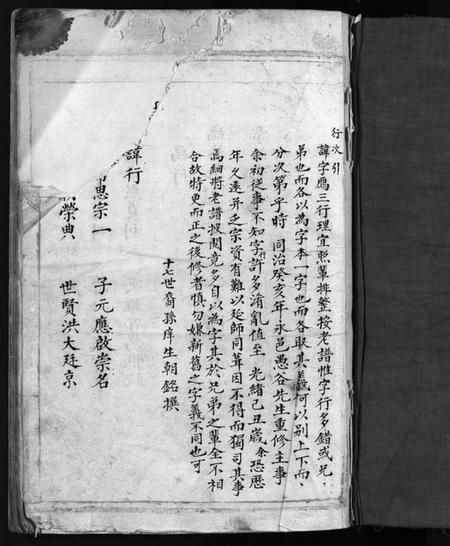 行次引
諱字鴈三行理宜照輩排整按老譜惟字行多錯或兄
弟也而各以為字本一字也而各取其義何以別上下而
分次第乎時 同治癸亥年永邑愚谷先生重修主事
余初從事不知字行許多淆亂值至 光緒己丑歲余忝歷
年久遠并乏宗資有難以延師同葺因不得而獨司其事
焉細將老譜披閱竟多自以為字其於兄弟之輩全不相
合故特更而正之後修者慎勿嫌新舊之字義不同也可
十七世裔孫庠生朝銘撰
諱行
惠宗一 子元應啟崇名
榮典 世賢洪大廷京